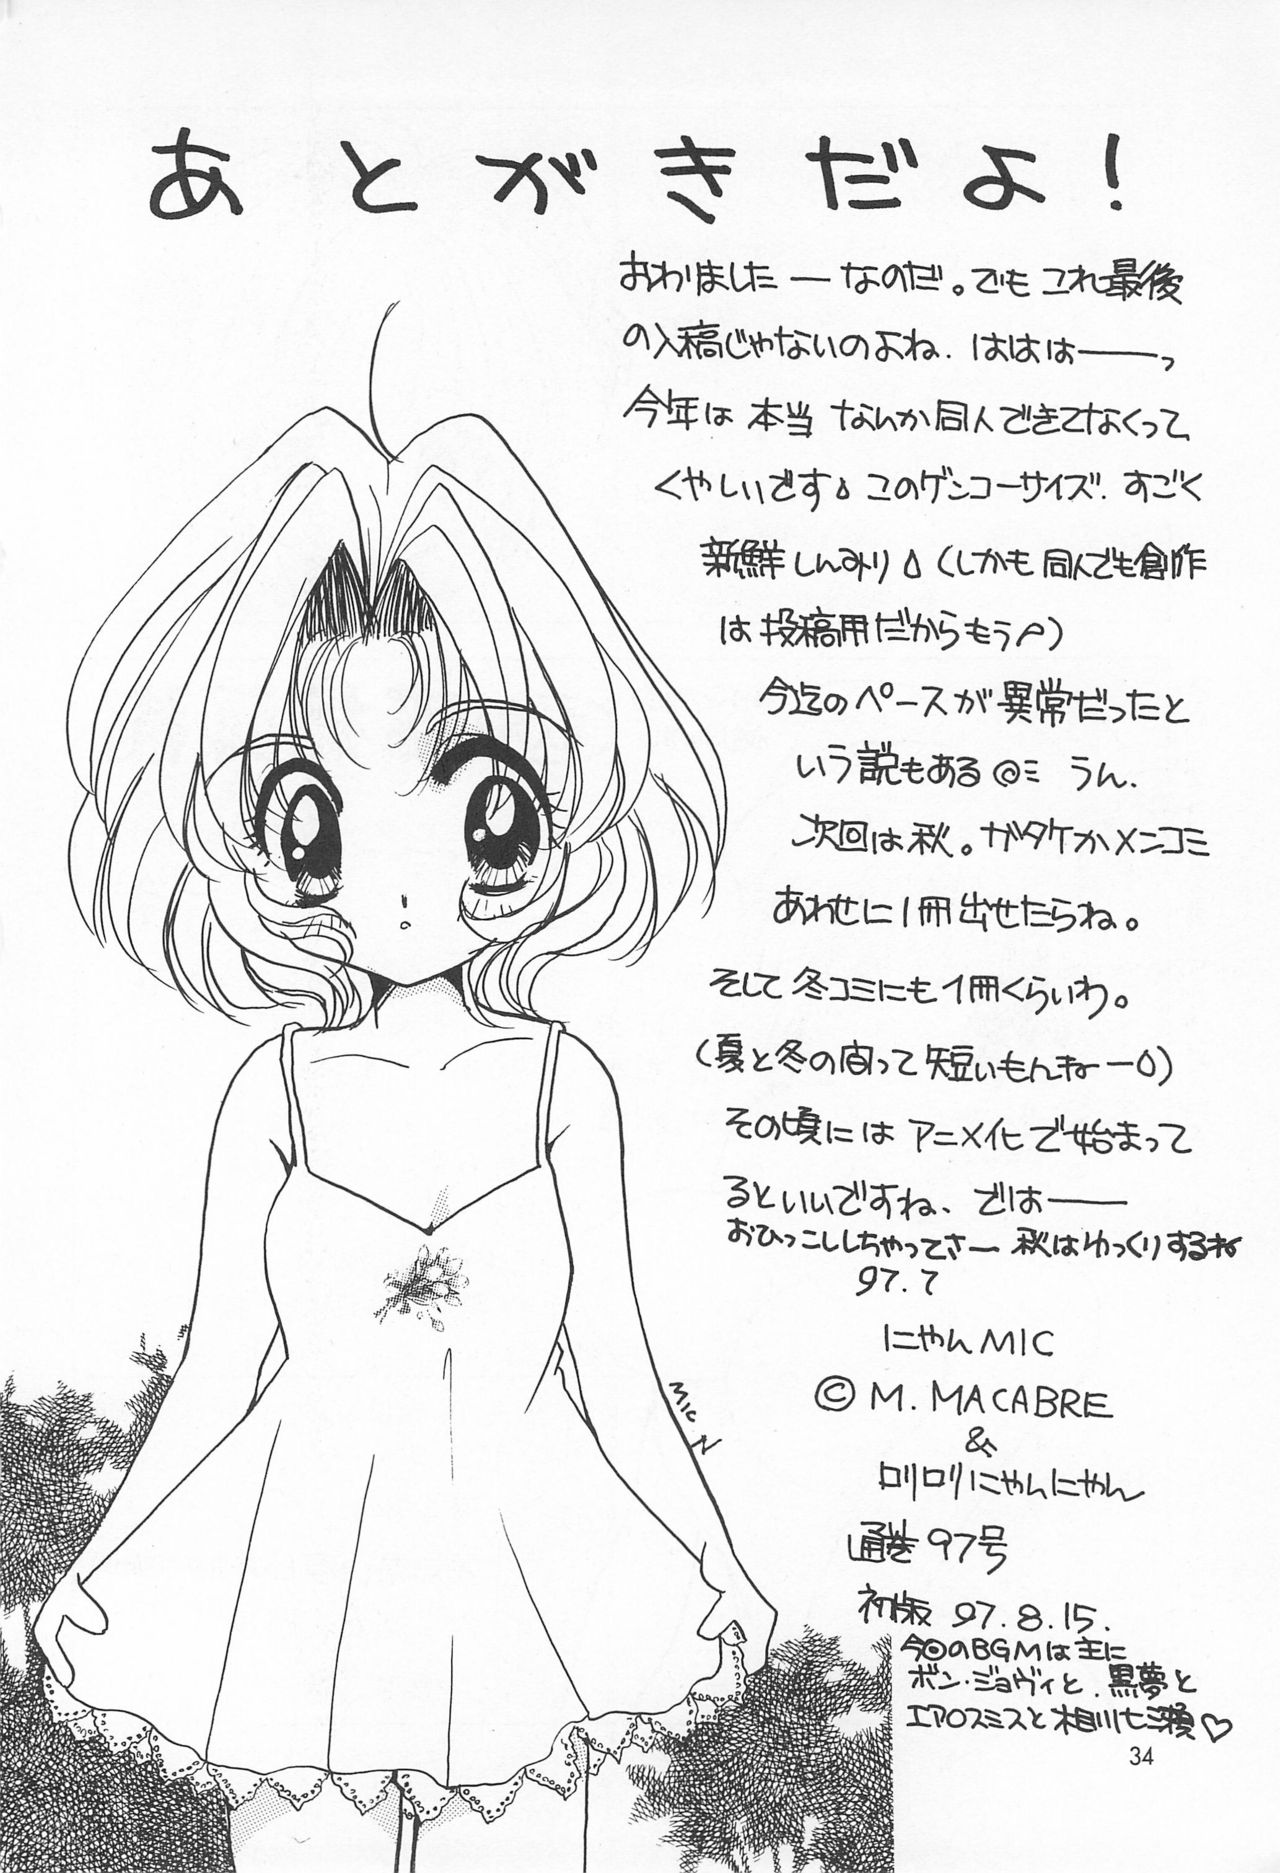 あとがきだよ!
おわりました ーなのだ。でも これ最後
の入稿じゃないのよね. はははーーっ
今年は 本当 なんか同人できてなくって
くやしいです このゲンコーサイズ. すごく
新鮮 しんみり (しかも 同人でも創作
は 投稿用だからもう)
今迄のペースが 異常だったと
いう説もある@ミ うん.
次回は 秋。ガタケかメンコミ
あわせに1冊 出せたらね。
そして 冬コミにも 1冊くらいわ。
(夏と冬の間って 短いもんねー)
その頃には アニメ化で始まって
るといいですね、では――
おひっこししちゃってさー 秋はゆっくりするね
97.7
にゃんMIC
© M. MACABRE
&
ロリロリにゃんにゃん
通巻97号
初版 97.8.15.
今回のBGMは主に
ボン・ジョヴィと.黒夢と
エアロスミスと相川七瀬♡
MIC N
34